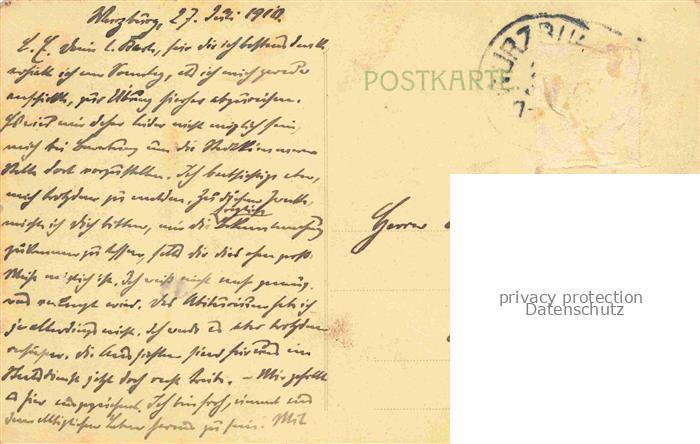 Würzburg, 27. Juli 1910.
L. E. Deine l. Karte, für die ich bestens danke,
erhielt ich am Sonntag, als ich mich gerade
anschickte, zur Übung hierher abzureisen.
Es wird mir daher leider nicht möglich sein,
mich bei Bewerbung um die Stadtkämmerer
Stelle dort vorzustellen. Ich beabsichtige aber,
mich trotzdem zu melden. Zu diesem Zwecke
möchte ich Dich bitten, mir die
zukommen zu lassen, falls dir dies ohne große
Mühe möglich ist. Ich weiß nicht mehr genau,
was verlangt wird. Das Abiturium habe ich
ja allerdings nicht. Ich werde es aber trotzdem
versuchen. Die Aussichten sind für uns im
Staatsdienste jetzt doch recht trübe. – Mir gefällt
es hier ausgezeichnet. Ich bin froh, einmal aus
dem alltäglichen Leben heraus zu sein. Mit
POSTKARTE
WÜRZBURG
7-
Herrn
privacy protection
Datenschutz